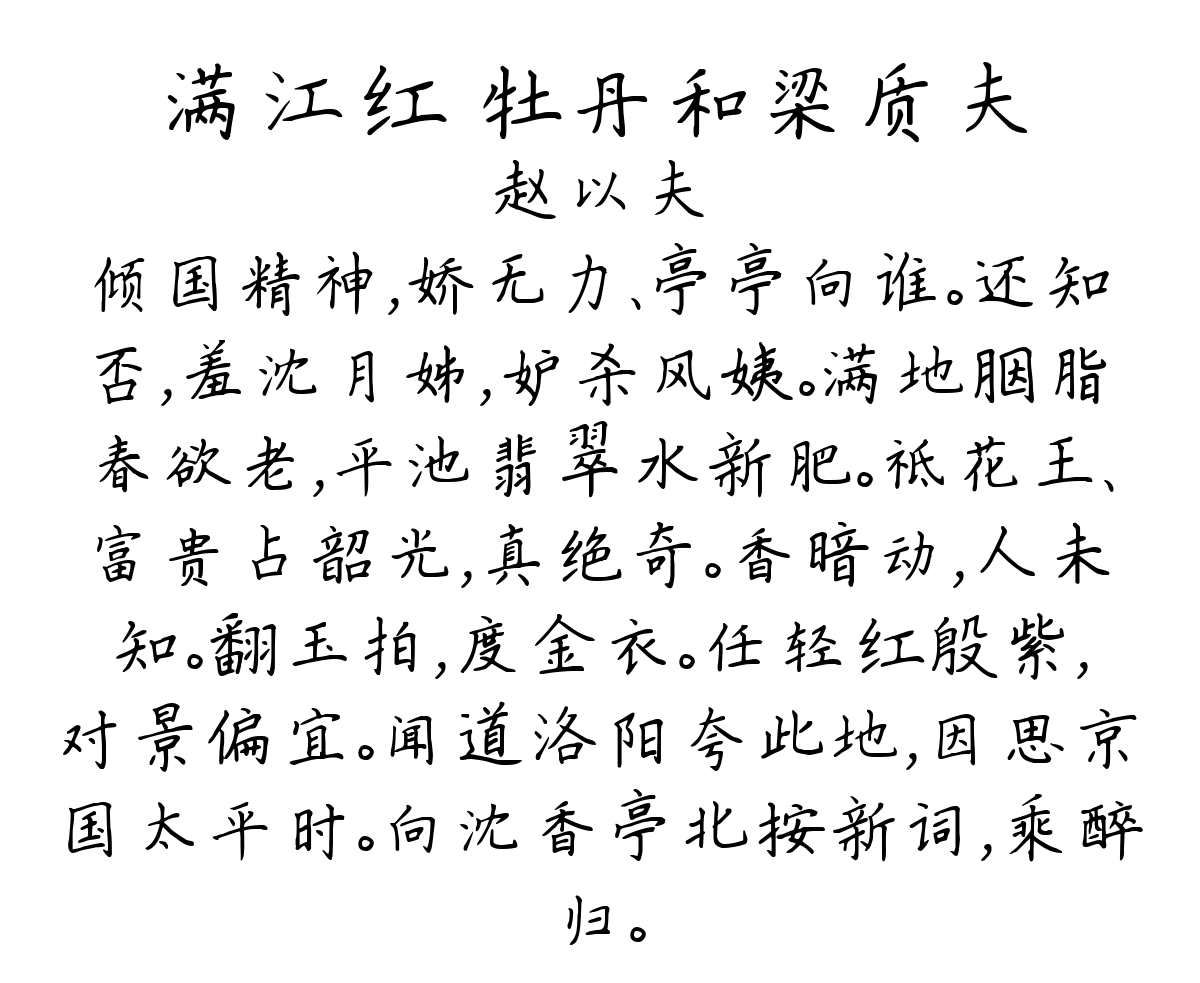 满江红 牡丹和梁质夫
赵以夫
倾国精神,娇无力、亭亭向谁。还知
否,羞沈月姊,妒杀风姨。满地胭脂
春欲老,平池翡翠水新肥。祗花王、
富贵占韶光,真绝奇。香暗动,人未
知。翻玉拍,度金衣。任轻红殷紫,
对景偏宜。闻道洛阳夸此地,因思京
国太平时。向沈香亭北按新词,乘醉
归。